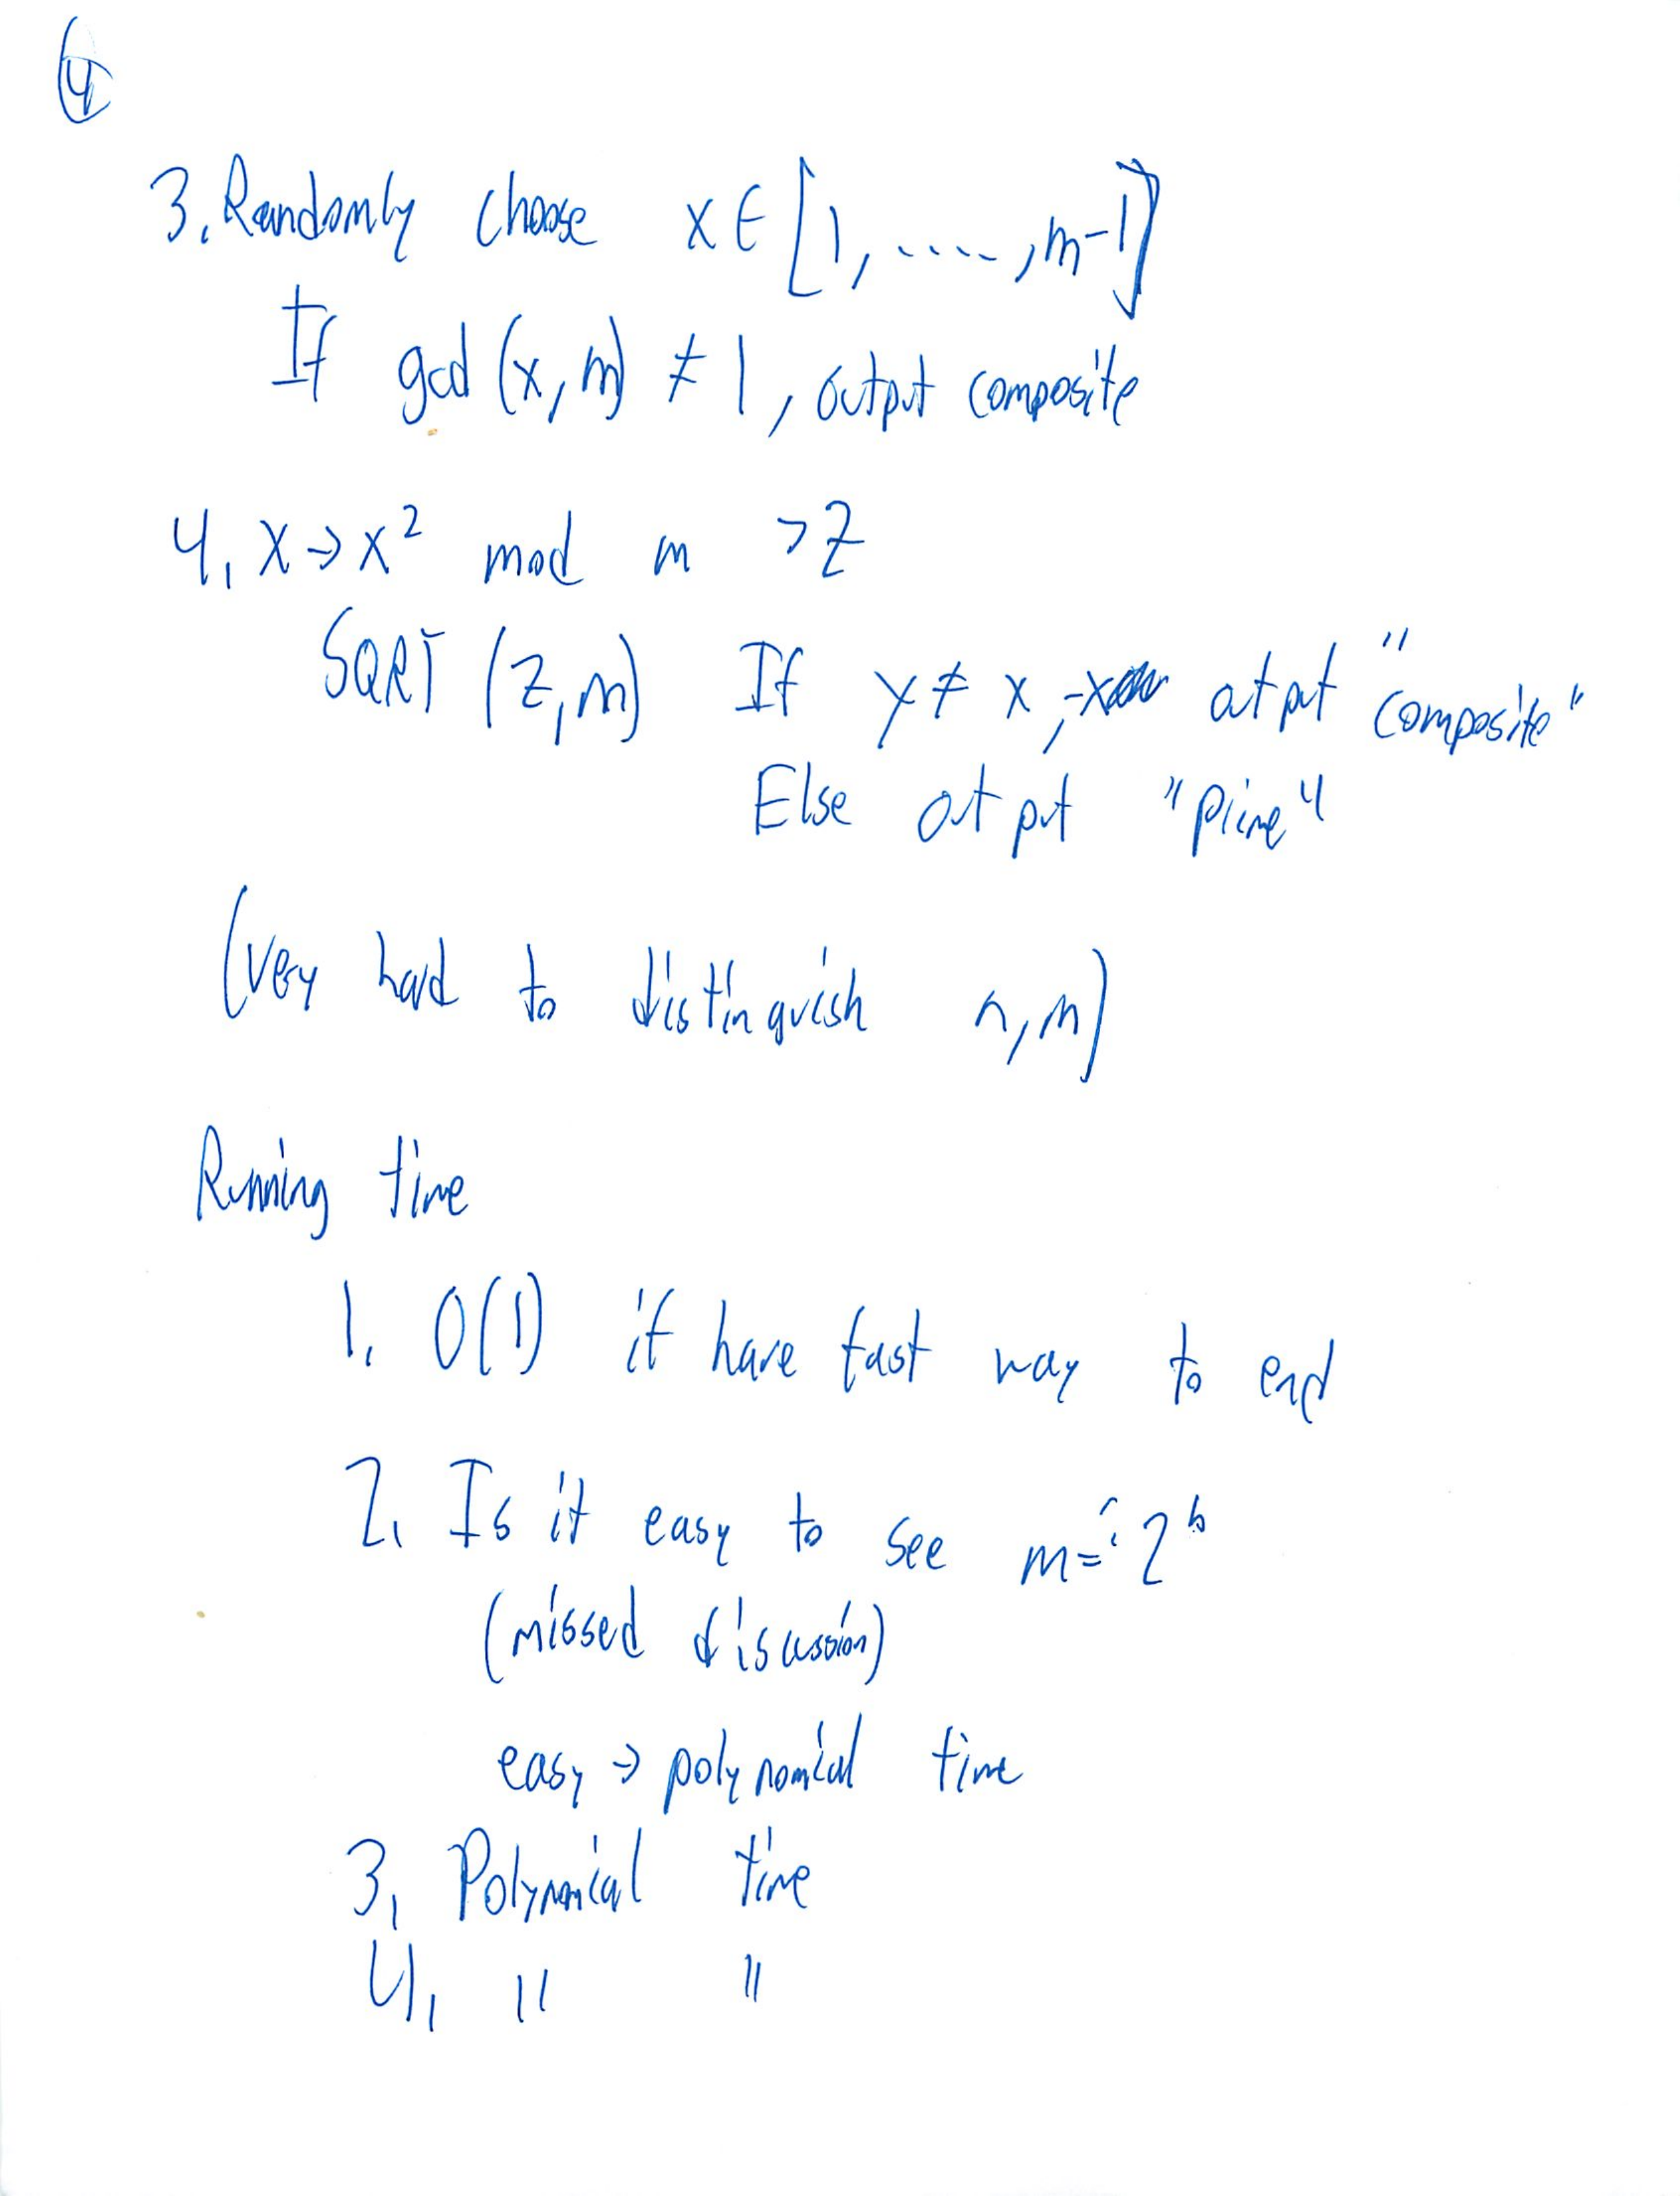 4
3. Randomly choose x ∈ [1, ....., m-1]
If gcd (x, m) ≠ 1, output composite
4. x → x² mod m → z
SQRT (z, m) If y ≠ x, -x output "composite"
Else output "prime"
(very hard to distinguish n, m)
Running time
1. O(1) if have fast way to end
2. Is it easy to see m =? 2^b
(missed discussion)
easy → polynomial time
3. Polynomial time
4. " "